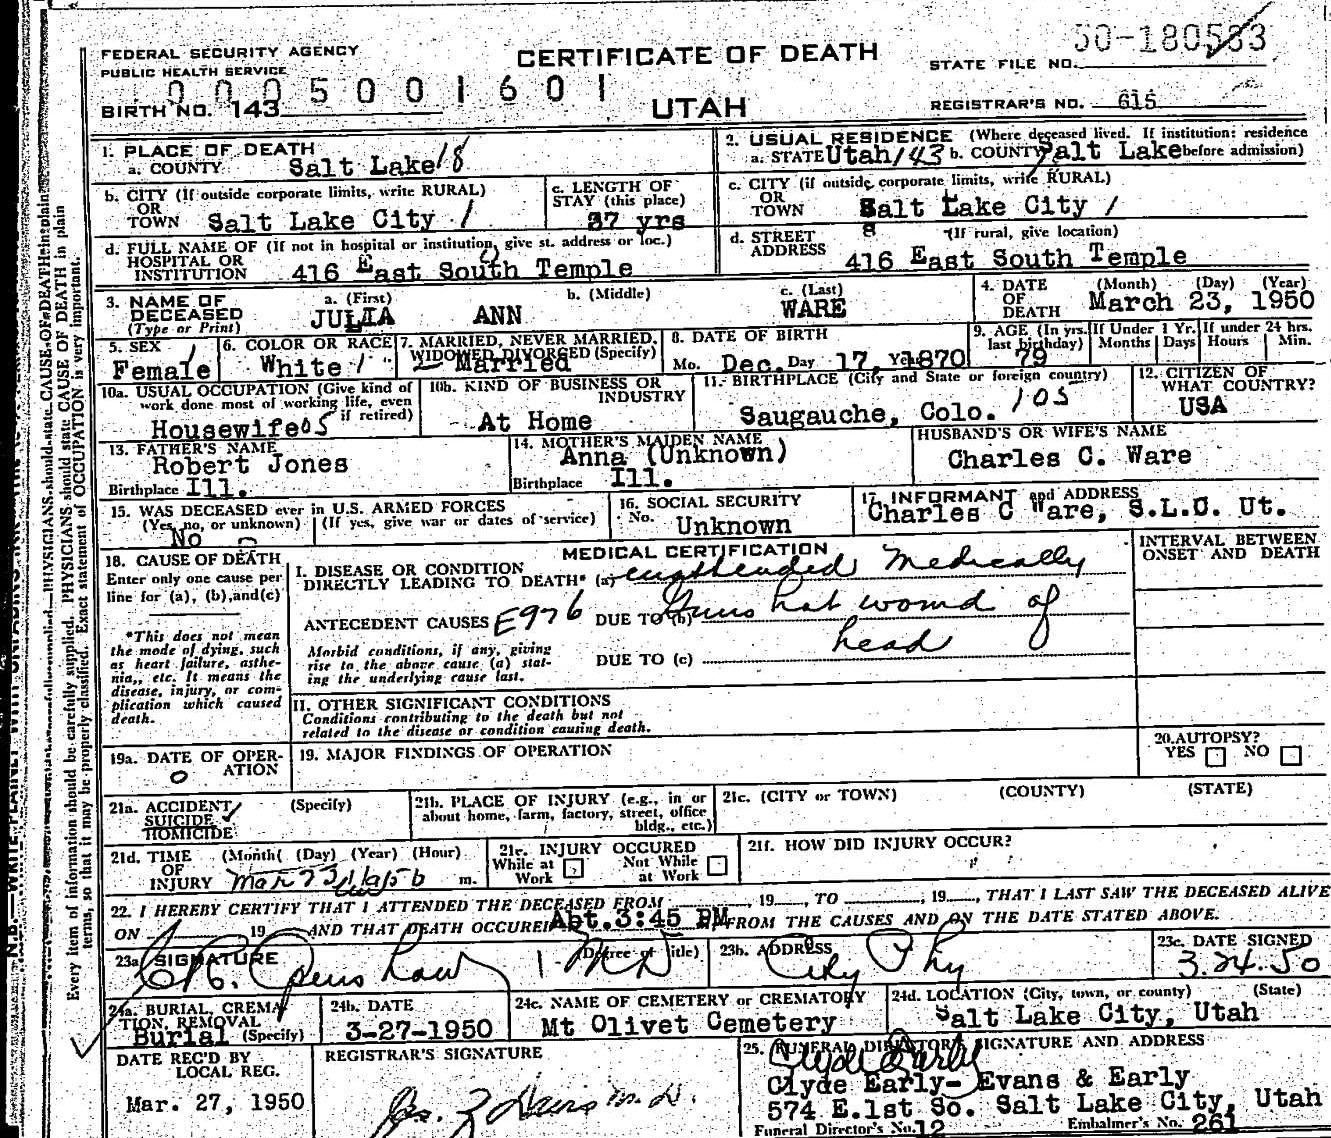 FEDERAL SECURITY AGENCY
PUBLIC HEALTH SERVICE
CERTIFICATE OF DEATH
UTAH
STATE FILE NO. 50-180583
0005001601
BIRTH NO. 143
REGISTRAR'S NO. 615
1. PLACE OF DEATH
a. COUNTY Salt Lake 18
2. USUAL RESIDENCE (Where deceased lived. If institution: residence before admission)
a. STATE Utah 143 b. COUNTY Salt Lake
b. CITY (If outside corporate limits, write RURAL)
OR TOWN Salt Lake City 1
c. LENGTH OF STAY (this place)
37 yrs
c. CITY (if outside corporate limits, write RURAL)
OR TOWN Salt Lake City 1
d. FULL NAME OF (If not in hospital or institution, give st. address or loc.)
HOSPITAL OR INSTITUTION 416 East South Temple
d. STREET ADDRESS (If rural, give location)
416 East South Temple
3. NAME OF DECEASED (Type or Print)
a. (First) b. (Middle) c. (Last)
JULIA ANN WARE
4. DATE OF DEATH (Month) (Day) (Year)
March 23, 1950
5. SEX 1
Female
6. COLOR OR RACE
White 1
7. MARRIED, NEVER MARRIED, WIDOWED, DIVORCED (Specify)
Married
8. DATE OF BIRTH
Mo. Dec. Day 17, Yr. 1870
9. AGE (In yrs. last birthday) 79
If Under 1 Yr. Months Days
If under 24 hrs. Hours Min.
10a. USUAL OCCUPATION (Give kind of work done most of working life, even if retired)
Housewife 05
10b. KIND OF BUSINESS OR INDUSTRY
At Home
11. BIRTHPLACE (City and State or foreign country)
Saugauche, Colo. 105
12. CITIZEN OF WHAT COUNTRY?
USA
13. FATHER'S NAME
Robert Jones
Birthplace Ill.
14. MOTHER'S MAIDEN NAME
Anna (Unknown)
Birthplace Ill.
HUSBAND'S OR WIFE'S NAME
Charles C. Ware
15. WAS DECEASED ever in U.S. ARMED FORCES
(Yes, no, or unknown) (If yes, give war or dates of service)
No
16. SOCIAL SECURITY
No. Unknown
17. INFORMANT and ADDRESS
Charles C Ware, S.L.C. Ut.
18. CAUSE OF DEATH
Enter only one cause per line for (a), (b), and (c)
*This does not mean the mode of dying, such as heart failure, asthenia, etc. It means the disease, injury, or complication which caused death.
MEDICAL CERTIFICATION
INTERVAL BETWEEN ONSET AND DEATH
I. DISEASE OR CONDITION
DIRECTLY LEADING TO DEATH* (a) Medically
ANTECEDENT CAUSES E976 DUE TO (b) Guns hot wound of
Morbid conditions, if any, giving rise to the above cause (a) stating the underlying cause last.
DUE TO (c) head
II. OTHER SIGNIFICANT CONDITIONS
Conditions contributing to the death but not related to the disease or condition causing death.
19a. DATE OF OPERATION
0
19. MAJOR FINDINGS OF OPERATION
20. AUTOPSY?
YES NO
21a. ACCIDENT (Specify)
SUICIDE ✓
HOMICIDE
21b. PLACE OF INJURY (e.g., in or about home, farm, factory, street, office bldg., etc.)
21c. (CITY or TOWN) (COUNTY) (STATE)
21d. TIME OF INJURY (Month) (Day) (Year) (Hour) m.
Mar 23
21e. INJURY OCCURED
While at Work Not While at Work
21f. HOW DID INJURY OCCUR?
22. I HEREBY CERTIFY THAT I ATTENDED THE DECEASED FROM , 19 , TO , 19 , THAT I LAST SAW THE DECEASED ALIVE
ON 19 AND THAT DEATH OCCURED Abt. 3:45 PM, FROM THE CAUSES AND ON THE DATE STATED ABOVE.
23a. SIGNATURE (Degree or Title)
MD
23b. ADDRESS
City Phy
23c. DATE SIGNED
3.24.50
24a. BURIAL, CREMATION, REMOVAL (Specify)
Burial
24b. DATE
3-27-1950
24c. NAME OF CEMETERY or CREMATORY
Mt Olivet Cemetery
24d. LOCATION (City, town, or county) (State)
Salt Lake City, Utah
DATE REC'D BY LOCAL REG.
Mar. 27, 1950
REGISTRAR'S SIGNATURE
M.D.
25. FUNERAL DIRECTOR'S SIGNATURE AND ADDRESS
Clyde Early
Clyde Early- Evans & Early
574 E.1st So. Salt Lake City, Utah
Funeral Director's No. 12 Embalmer's No. 261
Every item of information should be carefully supplied. PHYSICIANS should state CAUSE OF DEATH in plain
terms, so that it may be properly classified. Exact statement of OCCUPATION is very important.